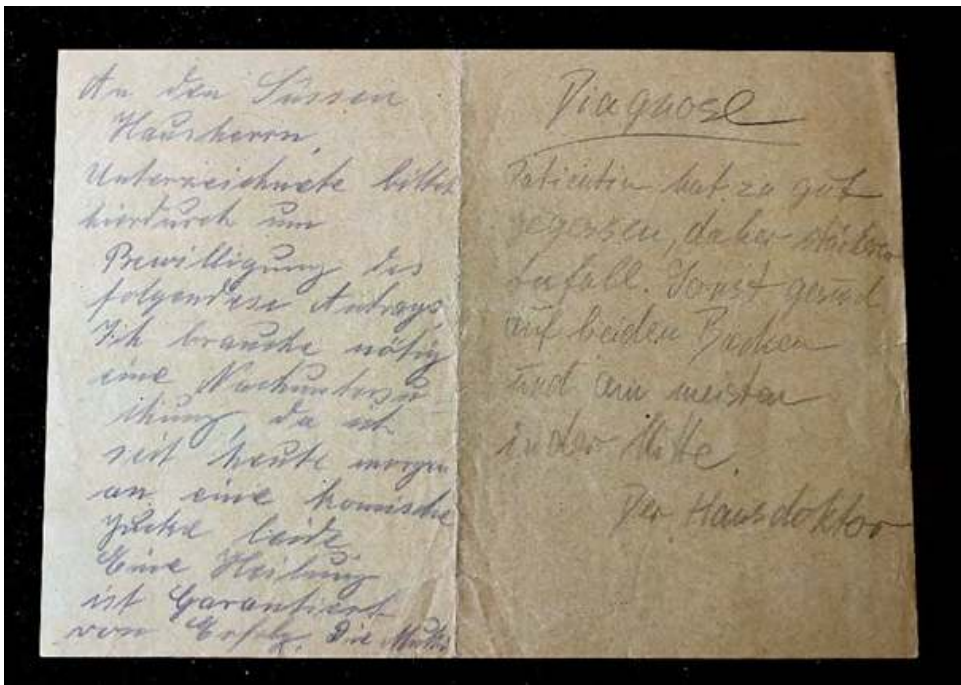 An den Süssen
Hausherrn,
Unterzeichnete bittet
hierdurch um
Bewilligung des
folgendese Antrags,
Ich brauche nötig
eine Nachuntersu
chung, da ich
seit heute morgen
an eine komische
leide,
Eine Heilung
ist Garantiert
von Erfolg. Die Mutter
Diagnose
Patientin hat zu gut
gegessen, daher
Anfall. Sonst gesund
auf beiden Backen
und am meisten
in der Mitte.
Der Hausdoktor